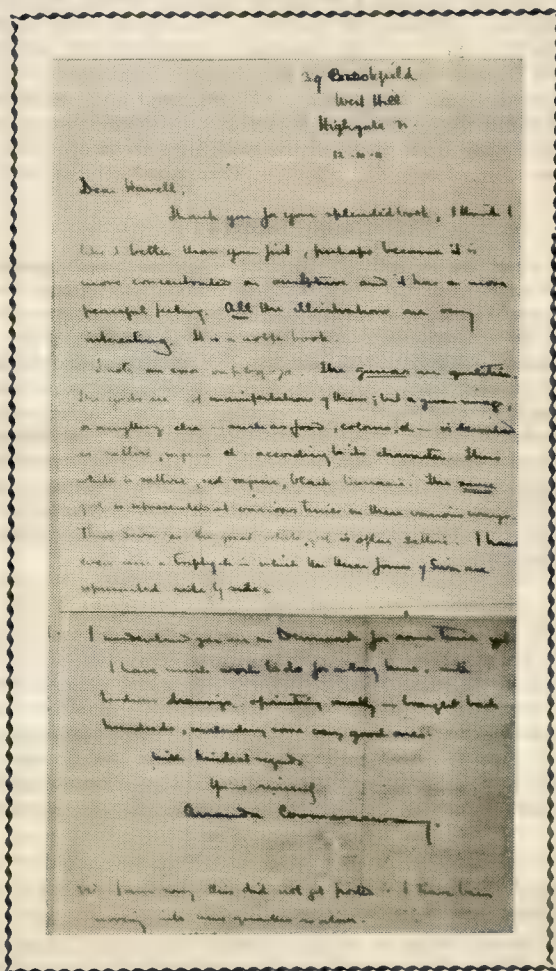 39 Brookfield
West Hill
Highgate N.
Dear Havell,
Thank you for your splendid book, I think I
like it better than your first, perhaps because it is
more concentrated on sculpture and it has a more
peaceful feeling. All the illustrations are very
interesting. It is a noble book.
I note an error on page. The gunas are qualities.
The gods are not manifestations of them; but a given image,
or anything else such as food, colours, etc is described
as sattvic, rajasic etc according to its character. Thus
white is sattvic, red rajasic, black tamasic. The same
god is represented at various times in these various ways.
Thus Siva as the great white god is often sattvic. I have
even seen a triptych in which the three forms of Siva are
represented side by side.
I understand you are in Denmark for some time yet
I have much work to do for a long time, with
Indian drawings, painting mostly brought back
hundreds, including some very good ones.
With kindest regards
Yours sincerely
Ananda Coomaraswamy.
I am sorry this did not get posted I have been
moving into new quarters